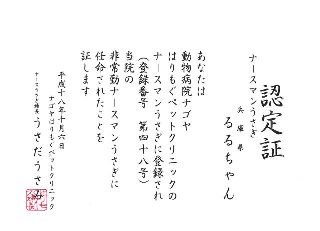 認定証
ナースマンうさぎ
兵庫県
るるちゃん
あなたは
動物病院ナゴヤ
はりもぐペットクリニックの
ナースマンうさぎに登録され
(登録番号 第四十八号)
当院の
非常勤ナースマンうさぎに
任命されたことを
証します
平成十八年十月六日
ナゴヤはりもぐペットクリニック
うさだうさみ